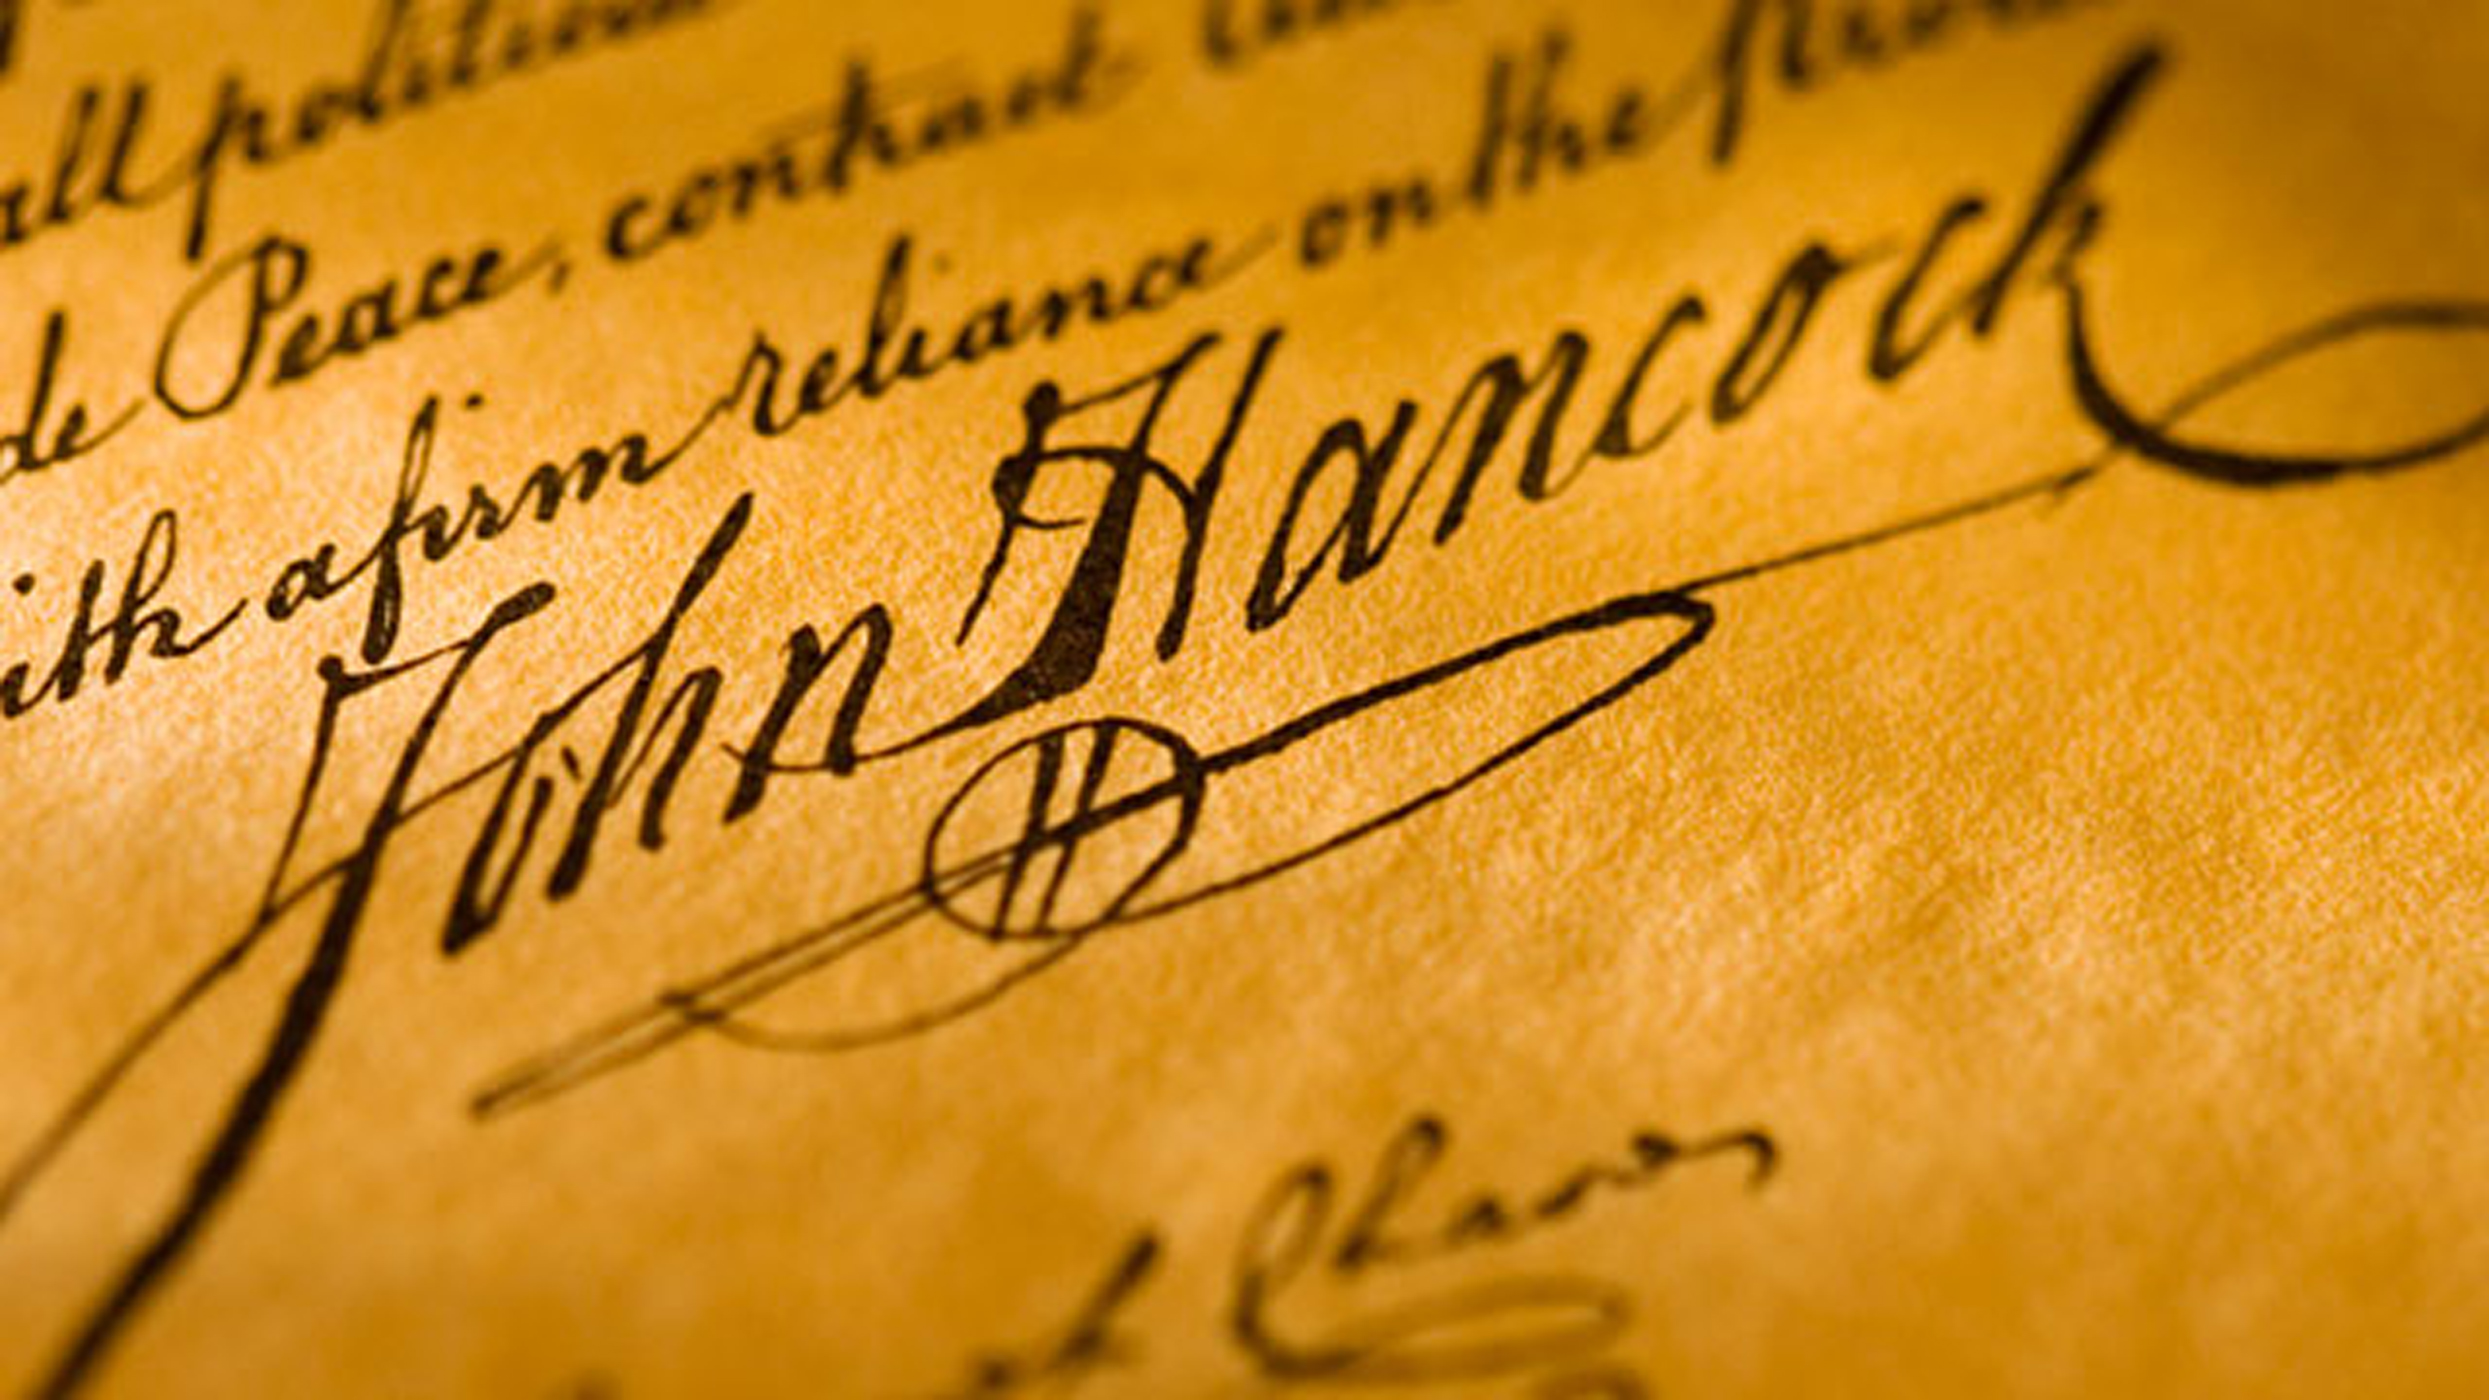 all political
de Peace, contract
ith a firm reliance on the
John Hancock
Chase